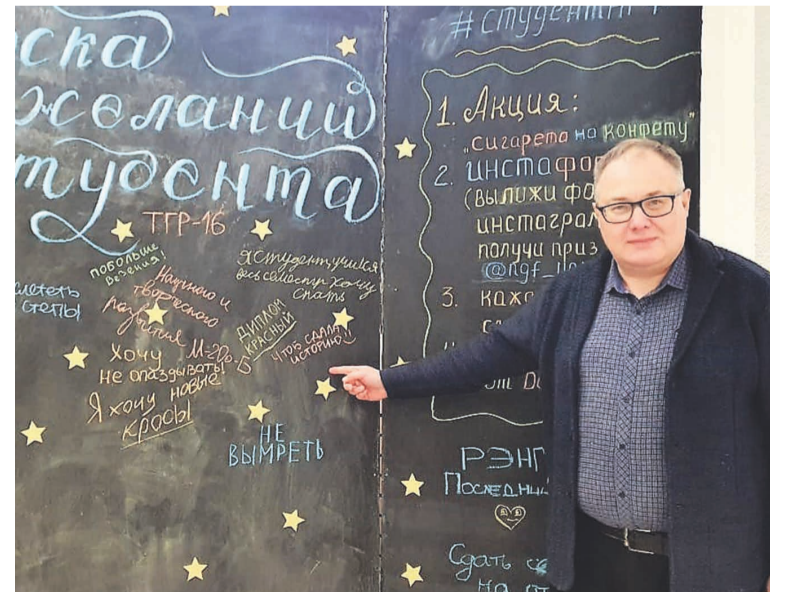 ска
желаний
студента
ТГР-16
ПОБОЛЬШЕ
ВЕЗЕНИЯ!
Научного и
творческого
развития
Я студент, учился
весь семестр, хочу
спать
слететь
степы
ДИПЛОМ
КРАСНЫЙ
Чтоб сдала
историю
Хочу
не опаздывать!
М-20
Я хочу новые
кросы
НЕ
ВЫМРЕТЬ
#студент
1. Акция:
„сигарета на конфету"
2. ИНСТАФО
(ВЫЛИЖИ ФО
инстаграм
получи приз
@ngf_
3. кажд
от
РЭНГ
Последний
Сдать се
на от